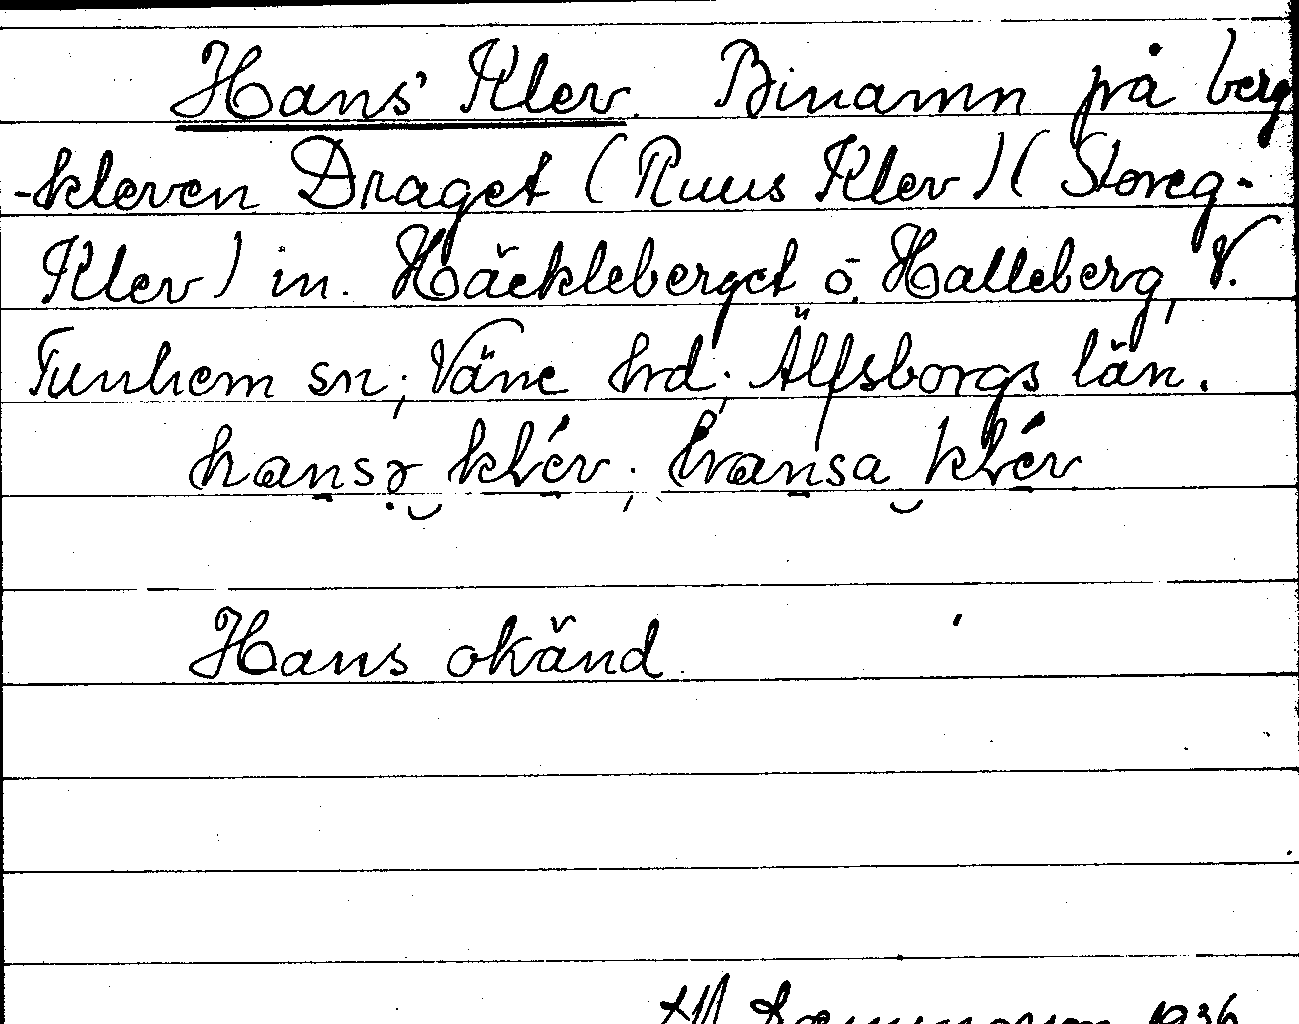 Hans' Klev. Binamn på berg
-kleven Draget (Ruus Klev) (Storeg-
Klev) in. Häckleberget o. Halleberg, V.
Tunhem sn; Väne hrd; Älfsborgs län.
hansə klév; hansa klév
Hans okänd.
1936